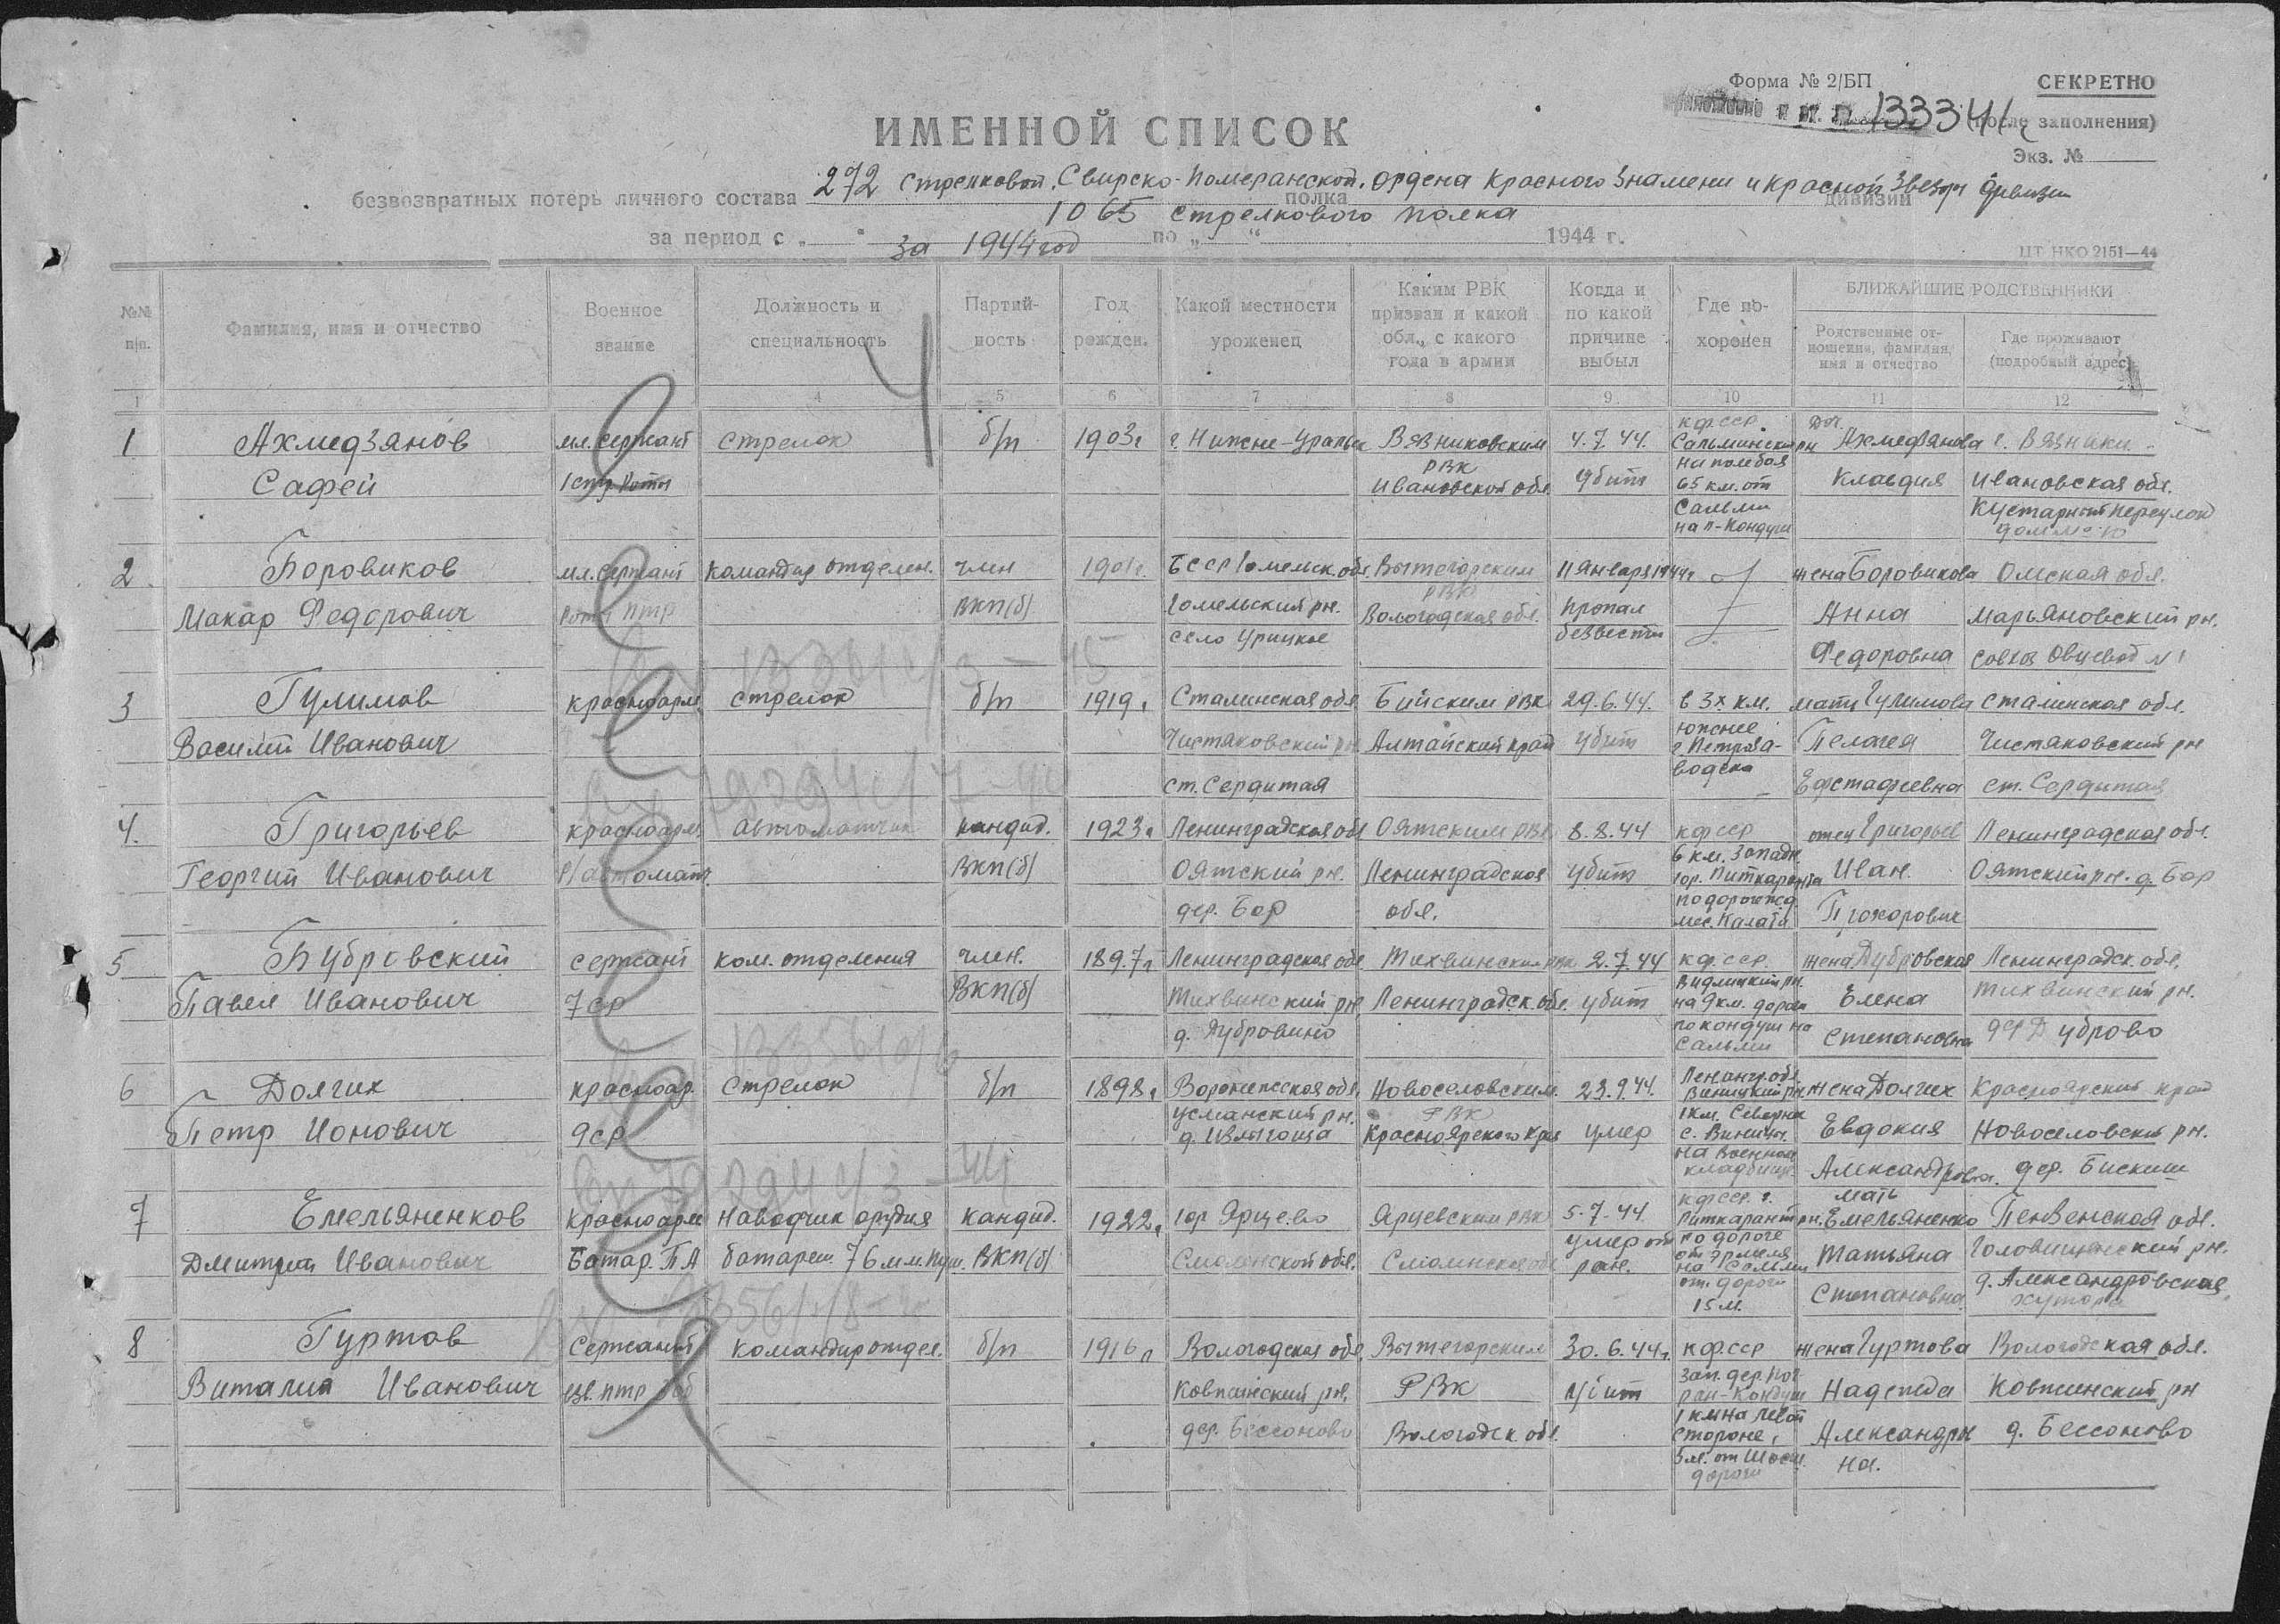 Форма № 2/БП
СЕКРЕТНО
13334
(после заполнения)
Экз. №
ИМЕННОЙ СПИСОК
безвозвратных потерь личного состава 272 стрелковой, Свирско-Померанской, ордена Красного Знамени и Красной Звезды дивизии
полка дивизии
1065 стрелкового полка
за период с „ “ за 1944 год по „ “ 1944 г.
ЦТ НКО 2151—44
№№ п/п.
Фамилия, имя и отчество
Военное звание
Должность и специальность
Партийность
Год рожден.
Какой местности уроженец
Каким РВК призван и какой обл., с какого года в армии
Когда и по какой причине выбыл
Где похоронен
БЛИЖАЙШИЕ РОДСТВЕННИКИ
Родственные отношения, фамилия, имя и отчество
Где проживают (подробный адрес)
1 4 5 6 7 8 9 10 11 12
1 Ахмедзянов мл. сержант стрелок б/п 1903г г. Нижне-Уральск Вязниковским 4.7.44. кфсср Сальминский рн Ахмедзянова г. Вязники
Сафей 1 стр. роты РВК Ивановской обл. убит на поле боя 65 км. от Клавдия Ивановская обл.
Сальми на п-Кондуши Кустарный переулок
2 Боровиков мл. сержант командир отделен. член 1901г. БССР Гомельск. обл. Вытегорским 11 января 1944г жена Боровикова Омская обл.
Макар Федорович роты птр ВКП(б) Гомельский рн. РВК Вологодская обл. пропал Анна Марьяновский рн.
село Урицкое безвести Федоровна совхоз Овцевод №1
3 Гулимов красноарм. стрелок б/п 1919г Сталинская обл Бийским РВК 29.6.44. в 3х км. мать Гулимова Сталинская обл.
Василий Иванович Чистяковский рн Алтайский край убит южнее г. Петроза- Пелагея Чистяковский рн
ст. Сердитая водска Ефстафеевна ст. Сердитая
4. Григорьев красноарм. автоматчик кандид. 1923г Ленинградская обл Оятским РВК 8.8.44 кфсср отец Григорьев Ленинградская обл.
Георгий Иванович Р/автомат. ВКП(б) Оятский рн. Ленинградская убит 6 км. западн. гор. Питкаранта Иван Оятский рн. д. Бор
дер. Бор обл. по дороге Прохорович
5 Бубровский сержант ком. отделения член. 1897г Ленинградская обл Тихвинским рвк 2.7.44 кфсср. жена Дубровская Ленинградск. обл.
Павел Иванович 7 ср ВКП(б) Тихвинский рн Ленинградск. обл. убит Видлицкий рн. на 9 км. дороги Елена Тихвинский рн.
д. Дубровино по кондуши на Сальми Степановна дер Дуброво
6 Долгих красноар. стрелок б/п 1898г Воронежская обл. Новоселовским 23.9.44. Ленингр. обл Винницкий рн. жена Долгих Красноярский край
Петр Ионович 9 ср Усманский рн. РВК Красноярского края умер 1 км. Севернее с. Винницы. Евдокия Новоселовский рн.
на военном кладбище Александровна. дер.
7 Емельяненков красноарм Наводчик орудия кандид. 1922г гор Ярцево Ярцевским РВК 5.7.44 кфсср. г. Питкарант рн. мать Емельяненко Пензенская обл.
Дмитрий Иванович Батар. ПА батареи 76 мм. пуш. ВКП(б) Смоленской обл. Смоленской обл умер от ран. по дороге на Сальми Татьяна Головинский рн.
от дороги 15 м. Степановна д. Александровская хутора
8 Гуртов Сержант командир отдел. б/п 1916г Вологодская обл. Вытегорским 30.6.44г. кфсср жена Гуртова Вологодская обл.
Виталий Иванович взв. птр Ковжинский рн. РВК убит зап. дер. Пог- ран-Кондуши Надежда Ковжинский рн
дер. Бессоново Вологодск обл. 1 км на левой стороне, Александров- д. Бессоново
5 м. от шосс. дороги на.